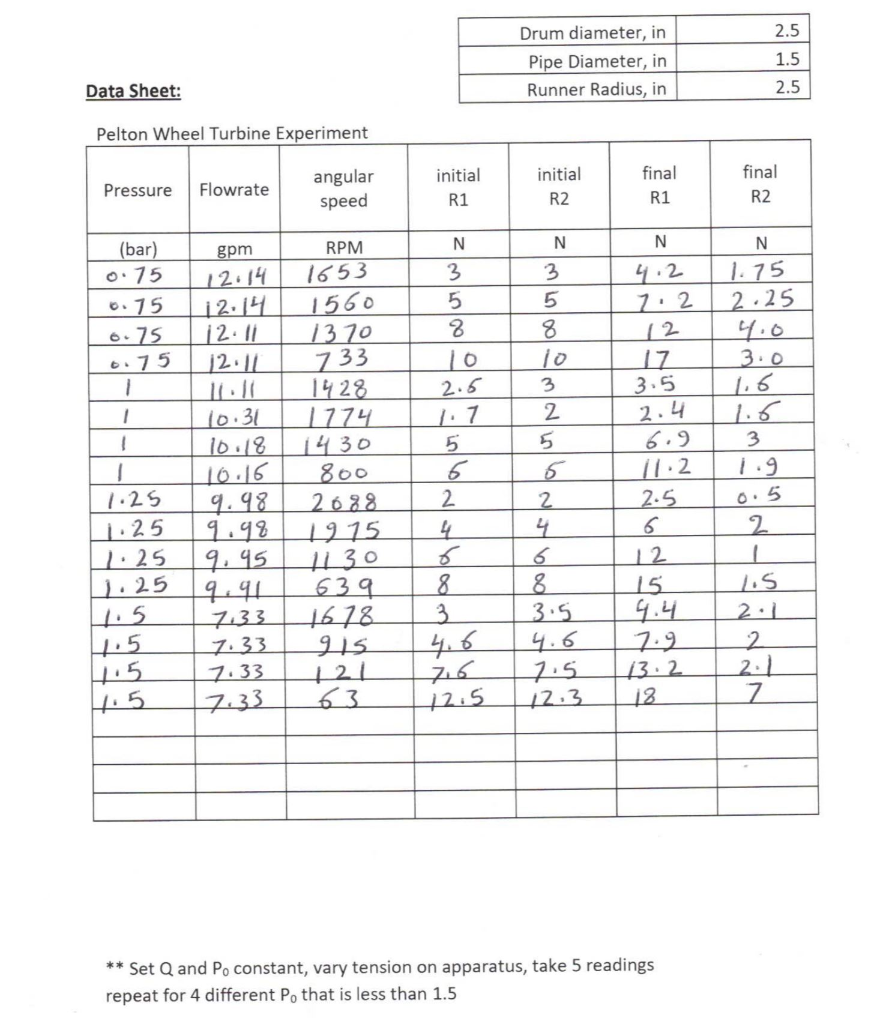 Drum diameter, in 2.5
Pipe Diameter, in 1.5
Data Sheet: Runner Radius, in 2.5
Pelton Wheel Turbine Experiment
Pressure Flowrate angular speed initial R1 initial R2 final R1 final R2
(bar) gpm RPM N N N N
0.75 12.14 1653 3 3 4.2 1.75
0.75 12.14 1560 5 5 7.2 2.25
0.75 12.11 1370 8 8 12 4.0
0.75 12.11 733 10 10 17 3.0
1 11.11 1428 2.6 3 3.5 1.6
1 10.31 1774 1.7 2 2.4 1.6
1 10.18 1430 5 5 6.9 3
1 10.16 800 6 6 11.2 1.9
1.25 9.98 2688 2 2 2.5 0.5
1.25 9.98 1975 4 4 6 2
1.25 9.95 1130 6 6 12 1
1.25 9.91 639 8 8 15 1.5
1.5 7.33 1678 3 3.5 4.4 2.1
1.5 7.33 915 4.6 4.6 7.9 2
1.5 7.33 121 7.6 7.5 13.2 2.1
1.5 7.33 63 12.5 12.3 18 7
** Set Q and P₀ constant, vary tension on apparatus, take 5 readings
repeat for 4 different P₀ that is less than 1.5